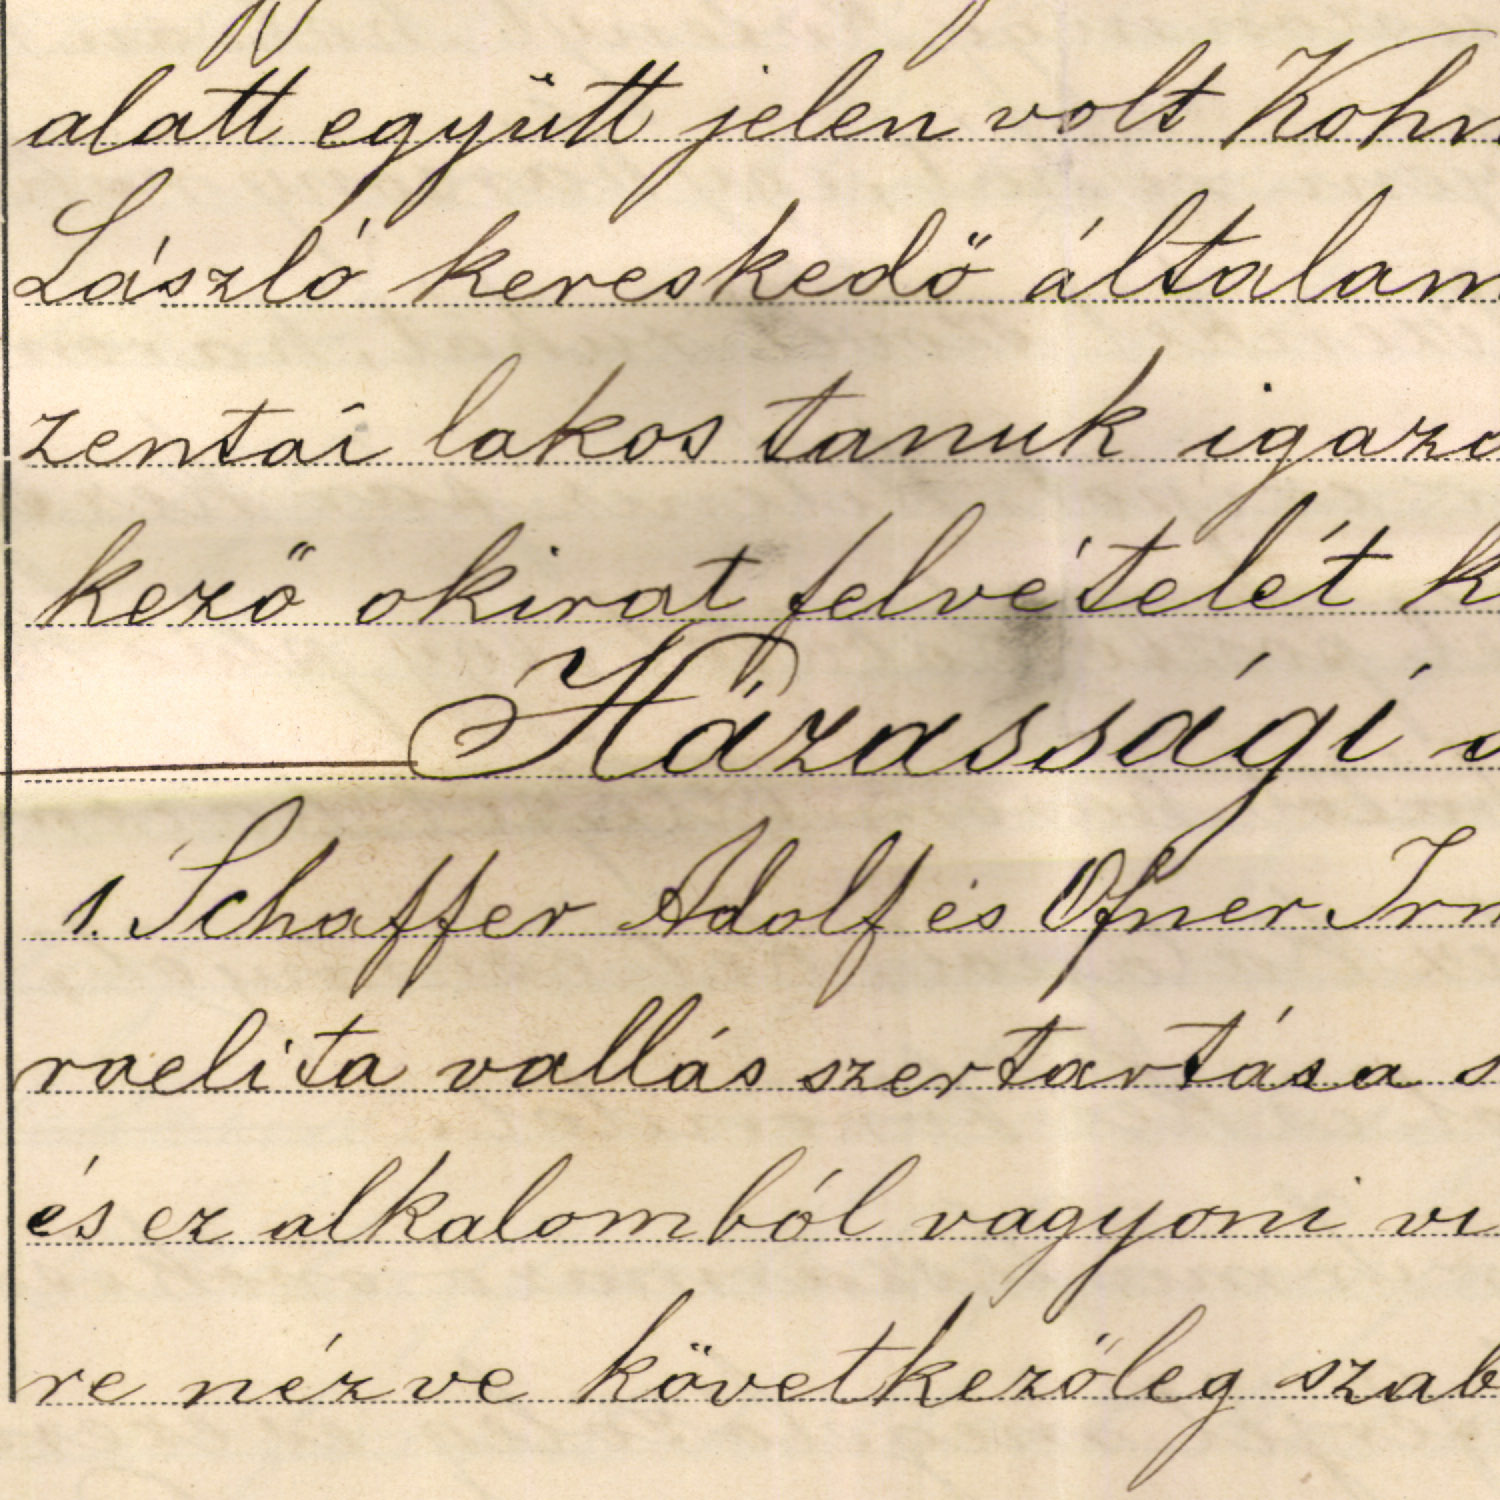 alatt együtt jelen volt Kohn
László kereskedő általam
zentai lakos tanuk igazo
kező okirat felvételét k
Házassági s
1. Schaffer Adolf és Ofner Irm
raelita vallás szertartása s
és ez alkalomból vagyoni vi
re nézve következőleg szab